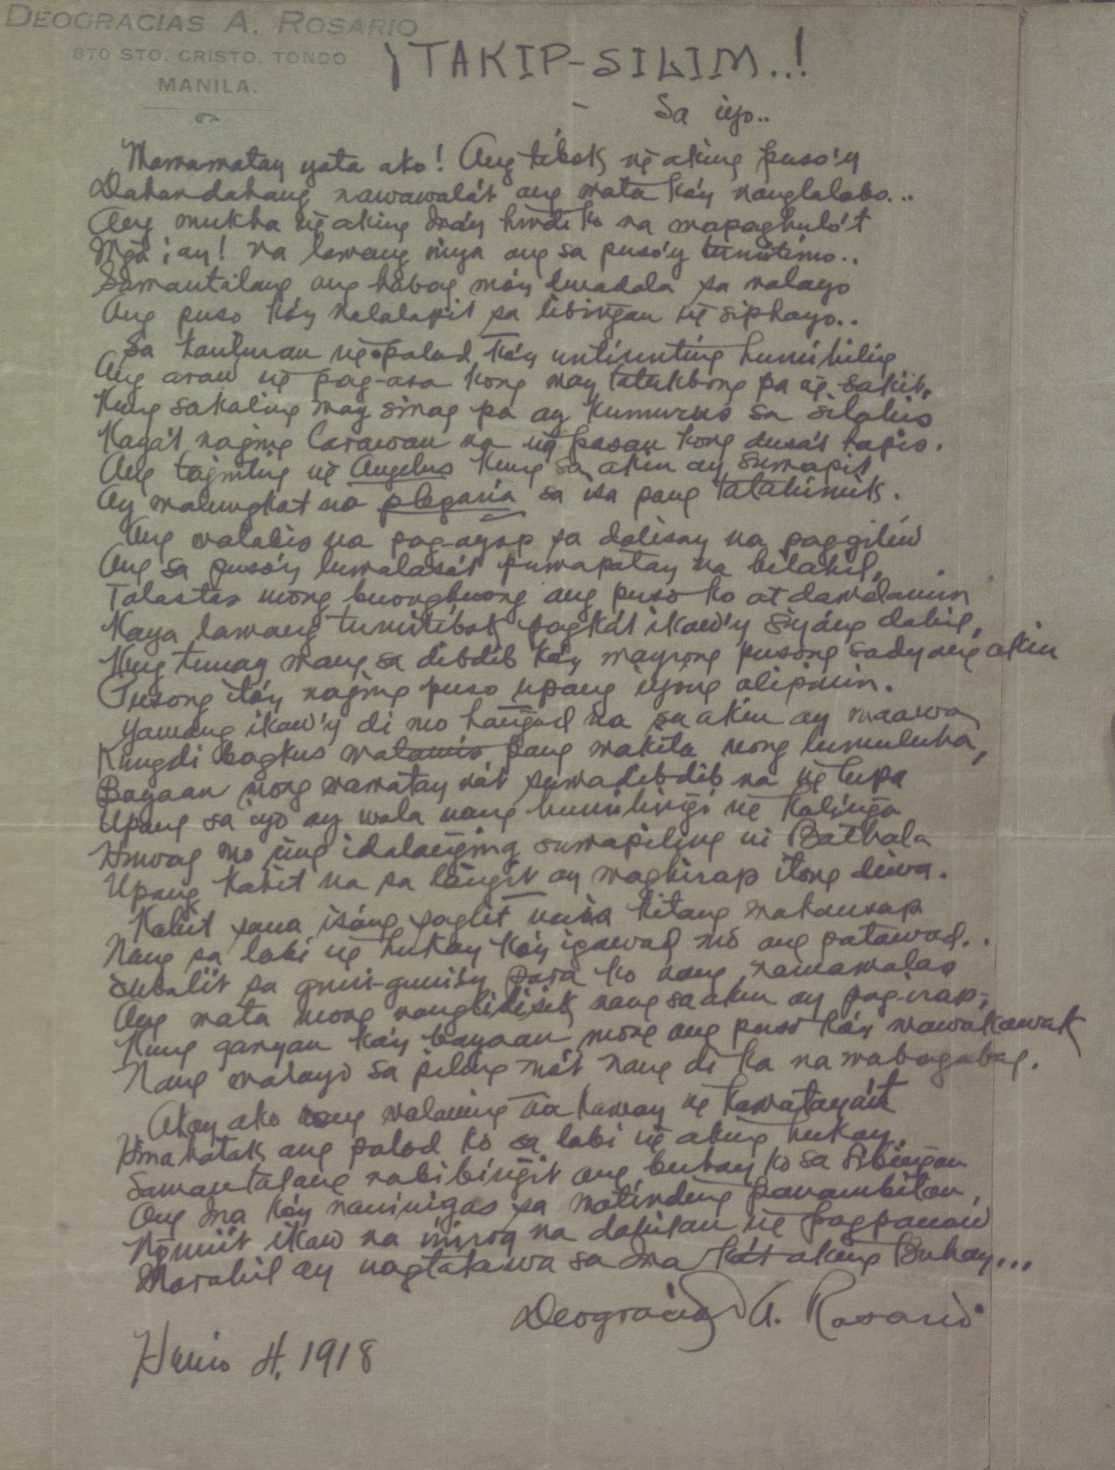 DEOGRACIAS A. ROSARIO
870 STO. CRISTO, TONDO
MANILA.
¡TAKIP-SILIM..!
Sa iyo..
Mamamatay yata ako! Ang tibok ng aking puso'y
Dahandahang nawawala't ang mata ko'y nanglalabo...
Ang mukha ng aking ina'y hindi ko na mapaghulo't
Mga ¡ay! na lamang niya ang sa puso'y tumitimo..
Samantalang ang habag mo'y dumadala sa malayo
Ang puso ko'y nalalapit sa libingan ng siphayo..
Sa kanluran ng palad ko'y untiunting humihilig
Ang araw ng pag-asa kong may tatakbong pa ag sakit,
Kung sakaling may sinag pa ay kumurus sa silahis
Kaya't naging larawan na ng pasan kong dusa't hapis.
Ang taginting ng Angelus kung sa akin ay sumapit
Ay malungkot na plegaria sa isa pang tatahimik.
Ang malabis na pag-ayap sa dalisay na paggiliw
Ang sa puso'y lumalasa't pumapatay na hilahil,
Talastas mong buongbuong ang puso ko at damdamin
Kaya lamang tumitibok pagka't ikaw'y siyang dahil,
Kung tunay mang sa dibdib ko'y mayrong pusong sadyang akin
Pusong ito'y naging puso upang iyong alipinin.
Yamang ikaw'y di mo hangad na sa akin ay maawa
Kungdi bagkus matamis pang makita mong lumuluha,
Bayaan mong mamatay na't sumadibdib na ng lupa
Upang sa iyo ay wala nang humihingi ng kalinga
Huwag mo ring idalanging sumapiling ni Bathala
Upang kahit na sa langit ay maghirap itong diwa.
Kahit sana isang saglit nasa kitang makausap
Nang sa labi ng hukay ko'y igawad mo ang patawad..
Subali't sa guni-guni'y para ko nang namamalas
Ang mata mong nanglilisik nang sa akin ay pag-irap;
Kung ganyan ka'y bayaan mong ang puso ko'y mawakawak
Nang malayo sa piling mo't nang di ka na mabagabag.
Akay ako nang malaming na kamay ng kamatayan't
Hinahatak ang palad ko sa labi ng aking hukay,
Samantalang nabibingit ang buhay ko sa libingan
Ang ina ko'y naninigas sa matinding panambitan,
Nguni't ikaw na inirog na dahilan ng pagpanaw
Marahil ay nagtatawa sa ina ko't aking buhay...
Deogracias A. Rosario
Hunio 4, 1918